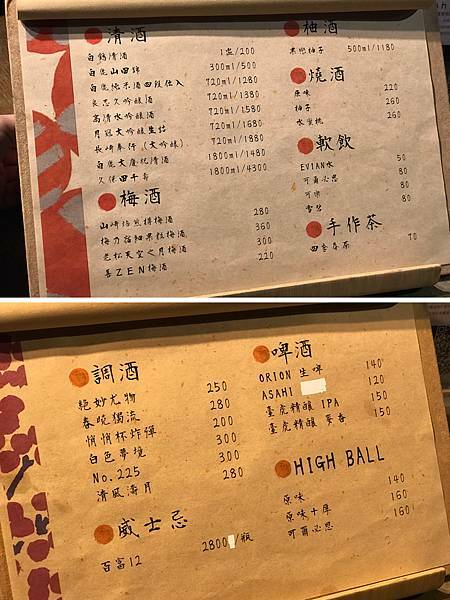 清酒
白鶴清酒 1盅/200
白鹿山田錦 300ml/500
白鹿純米酒四段仕入 720ml/1280
良志久吟釀酒 720ml/1380
高清水吟釀酒 720ml/1580
月冠大吟釀生詰 720ml/1680
長崎奉行(大吟釀) 720ml/1880
白鹿大慶祝清酒 1800ml/1480
久保田千壽 1800ml/4300
梅酒
山崎焙煎樽梅酒 280
梅乃宿粗果粒梅酒 360
老松天空之月梅酒 300
喜ZEN梅酒 220
柚酒
果樂柚子 500ml/1180
燒酒
原味 220
柚子 260
水蜜桃 260
軟飲
EVIAN水 80
可爾必思 50
可樂 50
雪碧 50
手作茶
四季春茶 70
調酒
絕妙尤物 250
春吮獨流 280
悄悄杯炸彈 200
白色夢境 300
No.225 300
清風濤月 280
威士忌
百富12 2800/瓶
啤酒
ORION 生啤 140
ASAHI 120
臺虎精釀 IPA 150
臺虎精釀 麥香 150
HIGH BALL
原味 140
原味+厚 160
可爾必思 160